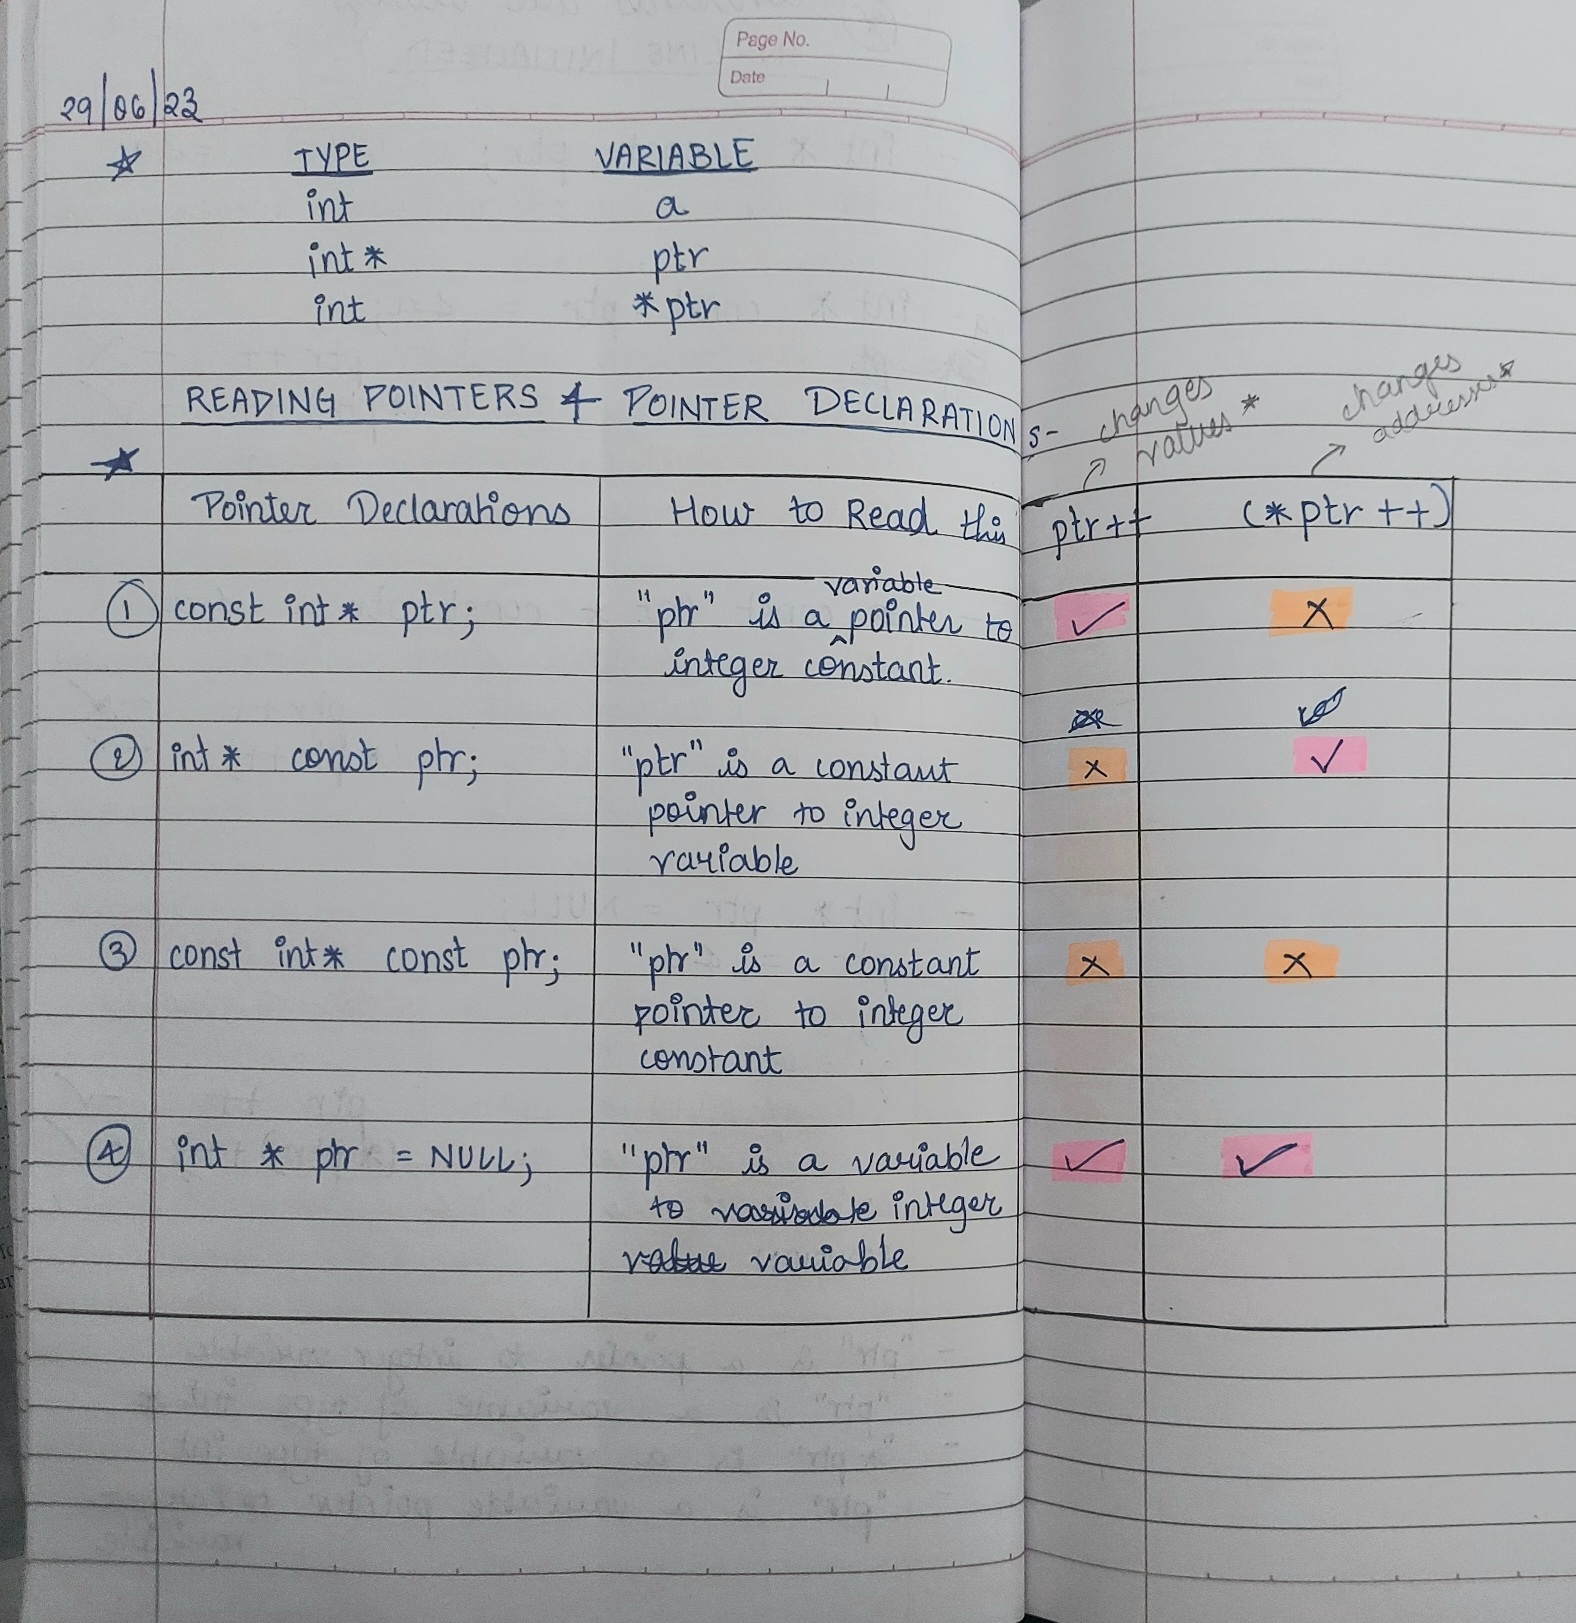 Page No.
Date
29/06/23
TYPE VARIABLE
int a
int * ptr
int *ptr
READING POINTERS & POINTER DECLARATIONS-
changes values *
changes addresses *
Pointer Declarations How to Read this ptr++ (*ptr ++)
① const int * ptr; "ptr" is a variable pointer to ✓ X
integer constant.
② int * const ptr; "ptr" is a constant X ✓
pointer to integer
variable
③ const int * const ptr; "ptr" is a constant X X
pointer to integer
constant
④ int * ptr = NULL; "ptr" is a variable ✓ ✓
to integer
variable